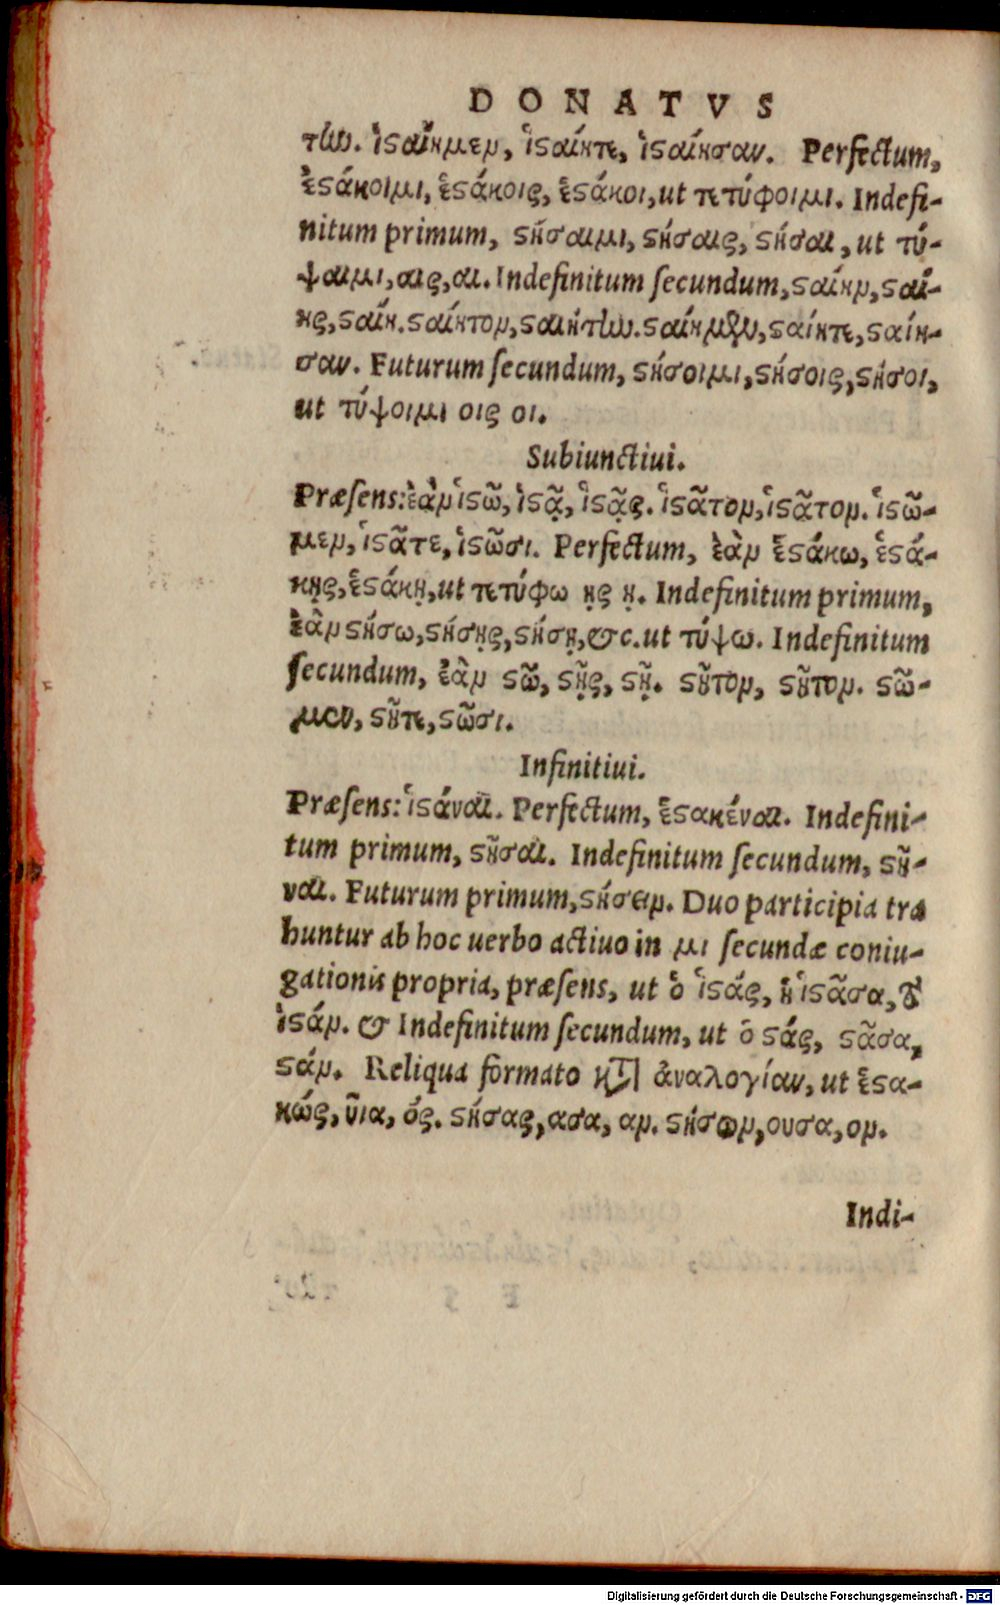 DONATVS
την. ἱσαίημεν, ἱσαίητε, ἱσαίησαν. Perfectum,
ἑσάκοιμι, ἑσάκοις, ἑσάκοι, ut τετύφοιμι. Indefi-
nitum primum, ϛήσαιμι, ϛήσαις, ϛήσαι, ut τύ-
ψαιμι, αις, αι. Indefinitum ſecundum, ϛαίην, ϛαί-
ης, ϛαίη. ϛαίητον, ϛαιήτην. ϛαίημεν, ϛαίητε, ϛαίη-
σαν. Futurum ſecundum, ϛήσοιμι, ϛήσοις, ϛήσοι,
ut τύψοιμι οις οι.
Subiunctiui.
Præſens: ἐὰν ἱϛῶ, ἱϛᾷ, ἱϛᾷς. ἱϛᾶτον, ἱϛᾶτον. ἱϛῶ-
μεν, ἱϛᾶτε, ἱϛῶσι. Perfectum, ἐὰν ἑϛάκω, ἑϛά-
κῃς, ἑϛάκῃ, ut τετύφω ῃς ῃ. Indefinitum primum,
ἐὰν ϛήσω, ϛήσῃς, ϛήσῃ, &c. ut τύψω. Indefinitum
ſecundum, ἐὰν ϛῶ, ϛῇς, ϛῇ. ϛῆτον, ϛῆτον. ϛῶ-
μεν, ϛῆτε, ϛῶσι.
Infinitiui.
Præſens: ἱϛάναι. Perfectum, ἑϛακέναι. Indefini-
tum primum, ϛῆσαι. Indefinitum ſecundum, ϛῆ-
ναι. Futurum primum, ϛήσειν. Duo participia tra
huntur ab hoc uerbo actiuo in μι ſecundæ coniu-
gationis propria, præſens, ut ὁ ἱϛάς, ἡ ἱϛᾶσα, τὸ
ἱϛάν. & Indefinitum ſecundum, ut ὁ ϛάς, ϛᾶσα,
ϛάν. Reliqua formato κατ' ἀναλογίαν, ut ἑϛα-
κώς, ῦια, ός. ϛήσας, ασα, αν. ϛήσων, ουσα, ον.
Indi-
Digitalisierung gefördert durch die Deutsche Forschungsgemeinschaft - DFG